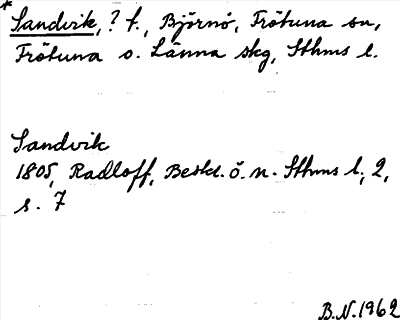 *Sandvik, ? t., Björnö, Frötuna sn,
Frötuna o. Länna skg, Sthms l.
Sandvik
1805, Radloff, Beskr. ö. n. Sthms l., 2,
s. 7
B.N. 1962